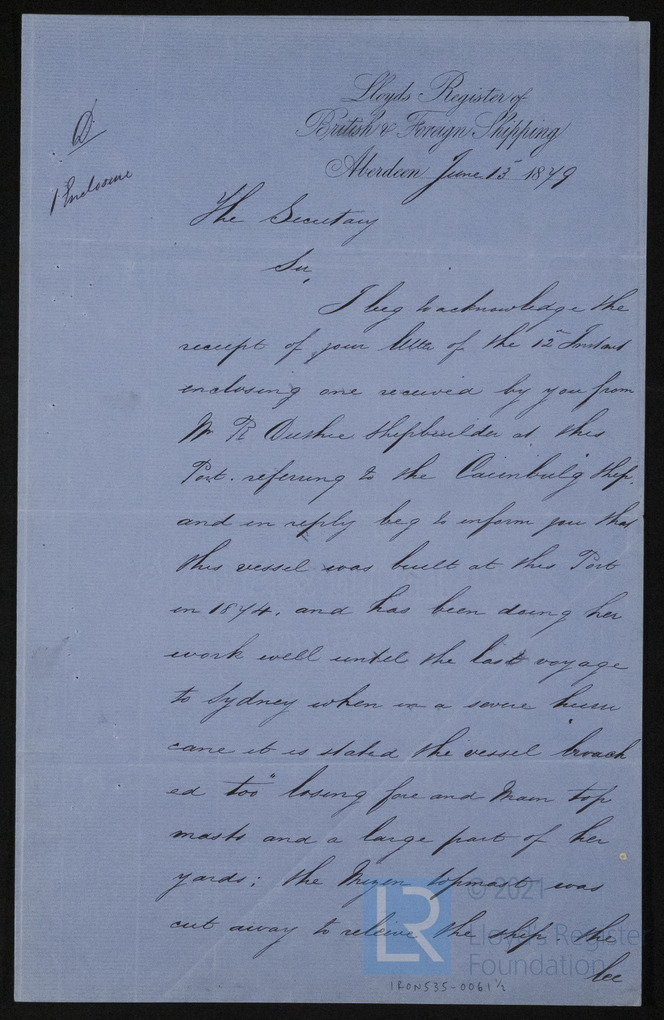 Lloyds Register of
British & Foreign Shipping
Aberdeen June 13th 1879
D
1 Enclosure
The Secretary
Sir,
I beg to acknowledge the
receipt of your letter of the 12th Instant
enclosing one received by you from
Mr R Duthie Shipbuilder at this
Port. referring to the Cairnbulg Ship,
and in reply beg to inform you that
this vessel was built at this Port
in 1874, and has been doing her
work well until the last voyage
to Sydney when in a severe hurri
cane it is stated the vessel "broach
ed too" losing fore and Main top
masts and a large part of her
yards; the Mizen topmast was
cut away to relieve the ship. the
lee
LR
© 2021
Lloyd's Register
Foundation
IRON535-0061 1/2